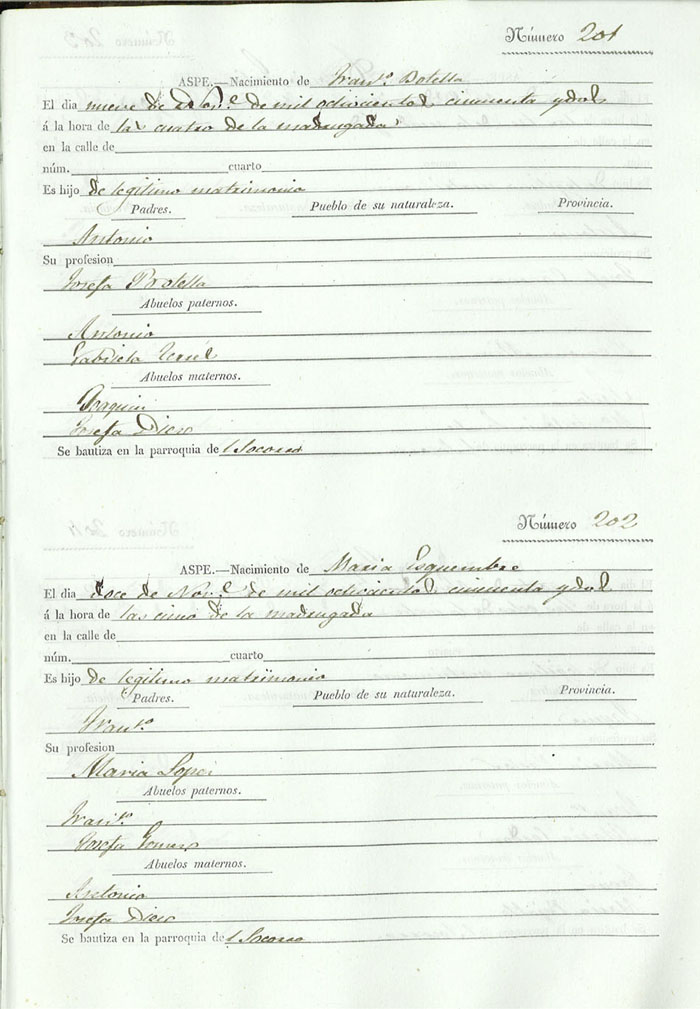 Número 201
ASPE.—Nacimiento de Fran.co Botella
El dia nueve de Nov.e de mil ochocientos cincuenta y dos
á la hora de las cuatro de la madrugada
en la calle de
núm. cuarto
Es hijo de legitimo matrimonio
Padres. Pueblo de su naturaleza. Provincia.
Antonio
Su profesion
Josefa Botella
Abuelos paternos.
Antonio
Gabriela Teruel
Abuelos maternos.
Joaquin
Josefa Diez
Se bautiza en la parroquia del Socorro
Número 202
ASPE.—Nacimiento de Maria Esquembre
El dia doce de Nov.e de mil ochocientos cincuenta y dos
á la hora de las cinco de la madrugada
en la calle de
núm. cuarto
Es hijo de legitimo matrimonio
Padres. Pueblo de su naturaleza. Provincia.
Fran.co
Su profesion
Maria Lopez
Abuelos paternos.
Fran.co
Josefa
Abuelos maternos.
Antonio
Josefa Diez
Se bautiza en la parroquia del Socorro